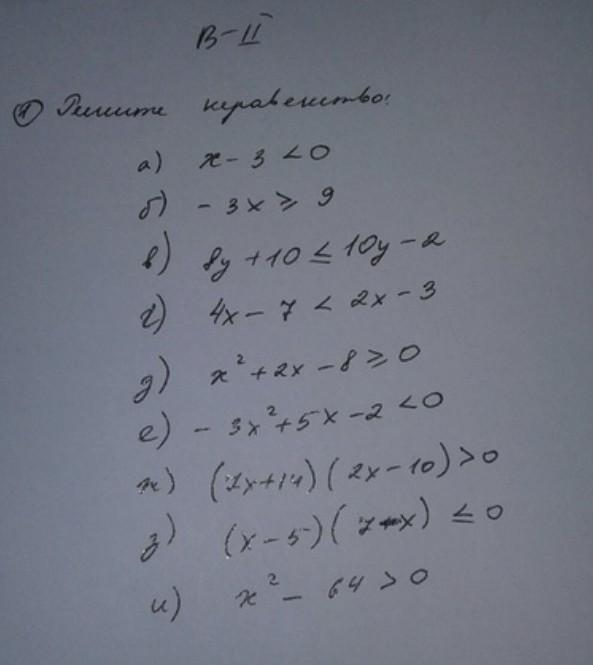 В-II
① Решите неравенство:
а) x - 3 < 0
б) - 3x ≥ 9
в) 8y + 10 ≤ 10y - 2
г) 4x - 7 < 2x - 3
д) x² + 2x - 8 ≥ 0
е) - 3x² + 5x - 2 < 0
ж) (7x+14)(2x-10) > 0
з) (x - 5)(7-x) ≤ 0
и) x² - 64 > 0